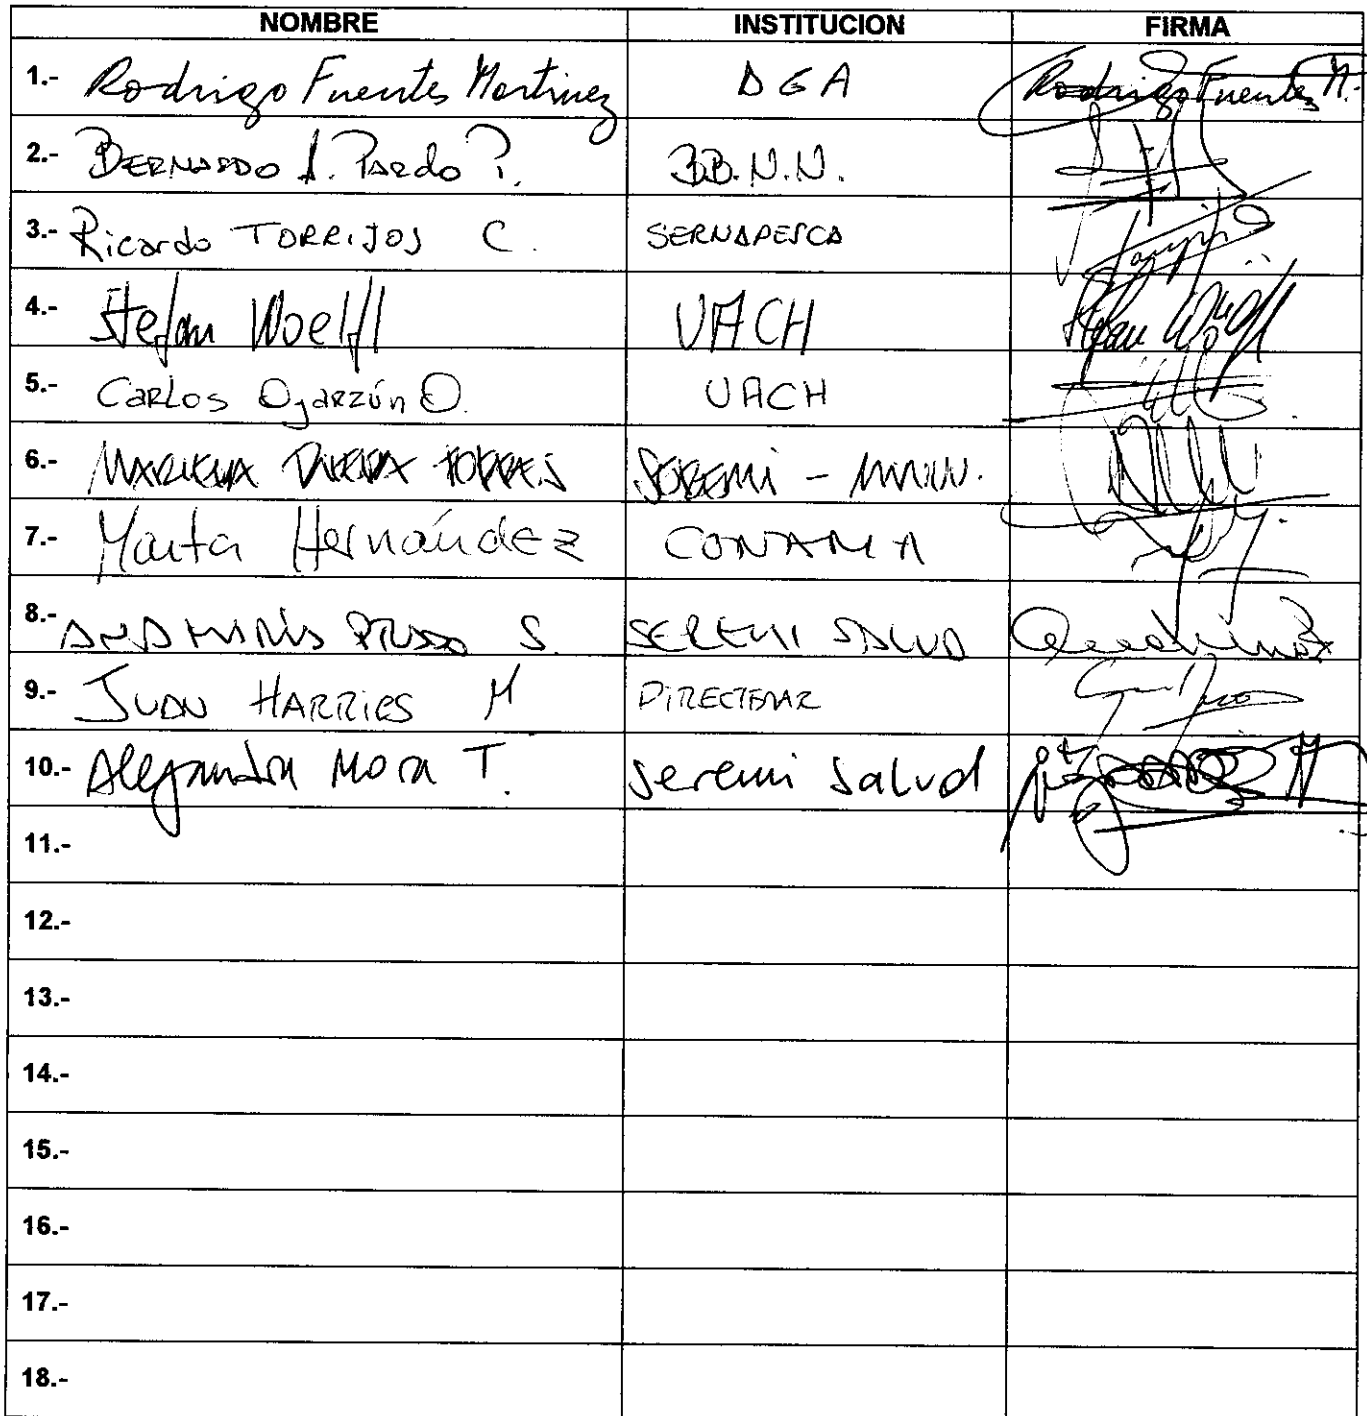 NOMBRE INSTITUCION FIRMA
1.- Rodrigo Fuentes Martinez DGA Rodrigo Fuentes M.
2.- BERNARDO A. PARDO P. BB.N.N.
3.- Ricardo TORRIJOS C. SERNAPESCA
4.- Stefan Woelfl UACH Stefan Woelfl
5.- CARLOS OyARZÚN O. UACH
6.- TORRES SEREMI -
7.- Marta Hernández CONAMA
8.- ANA MARÍA S. SEREMI SALUD
9.- JUAN HARRIES M DIRECTEMAR
10.- Alejandra Mora T. Seremi Salud
11.-
12.-
13.-
14.-
15.-
16.-
17.-
18.-